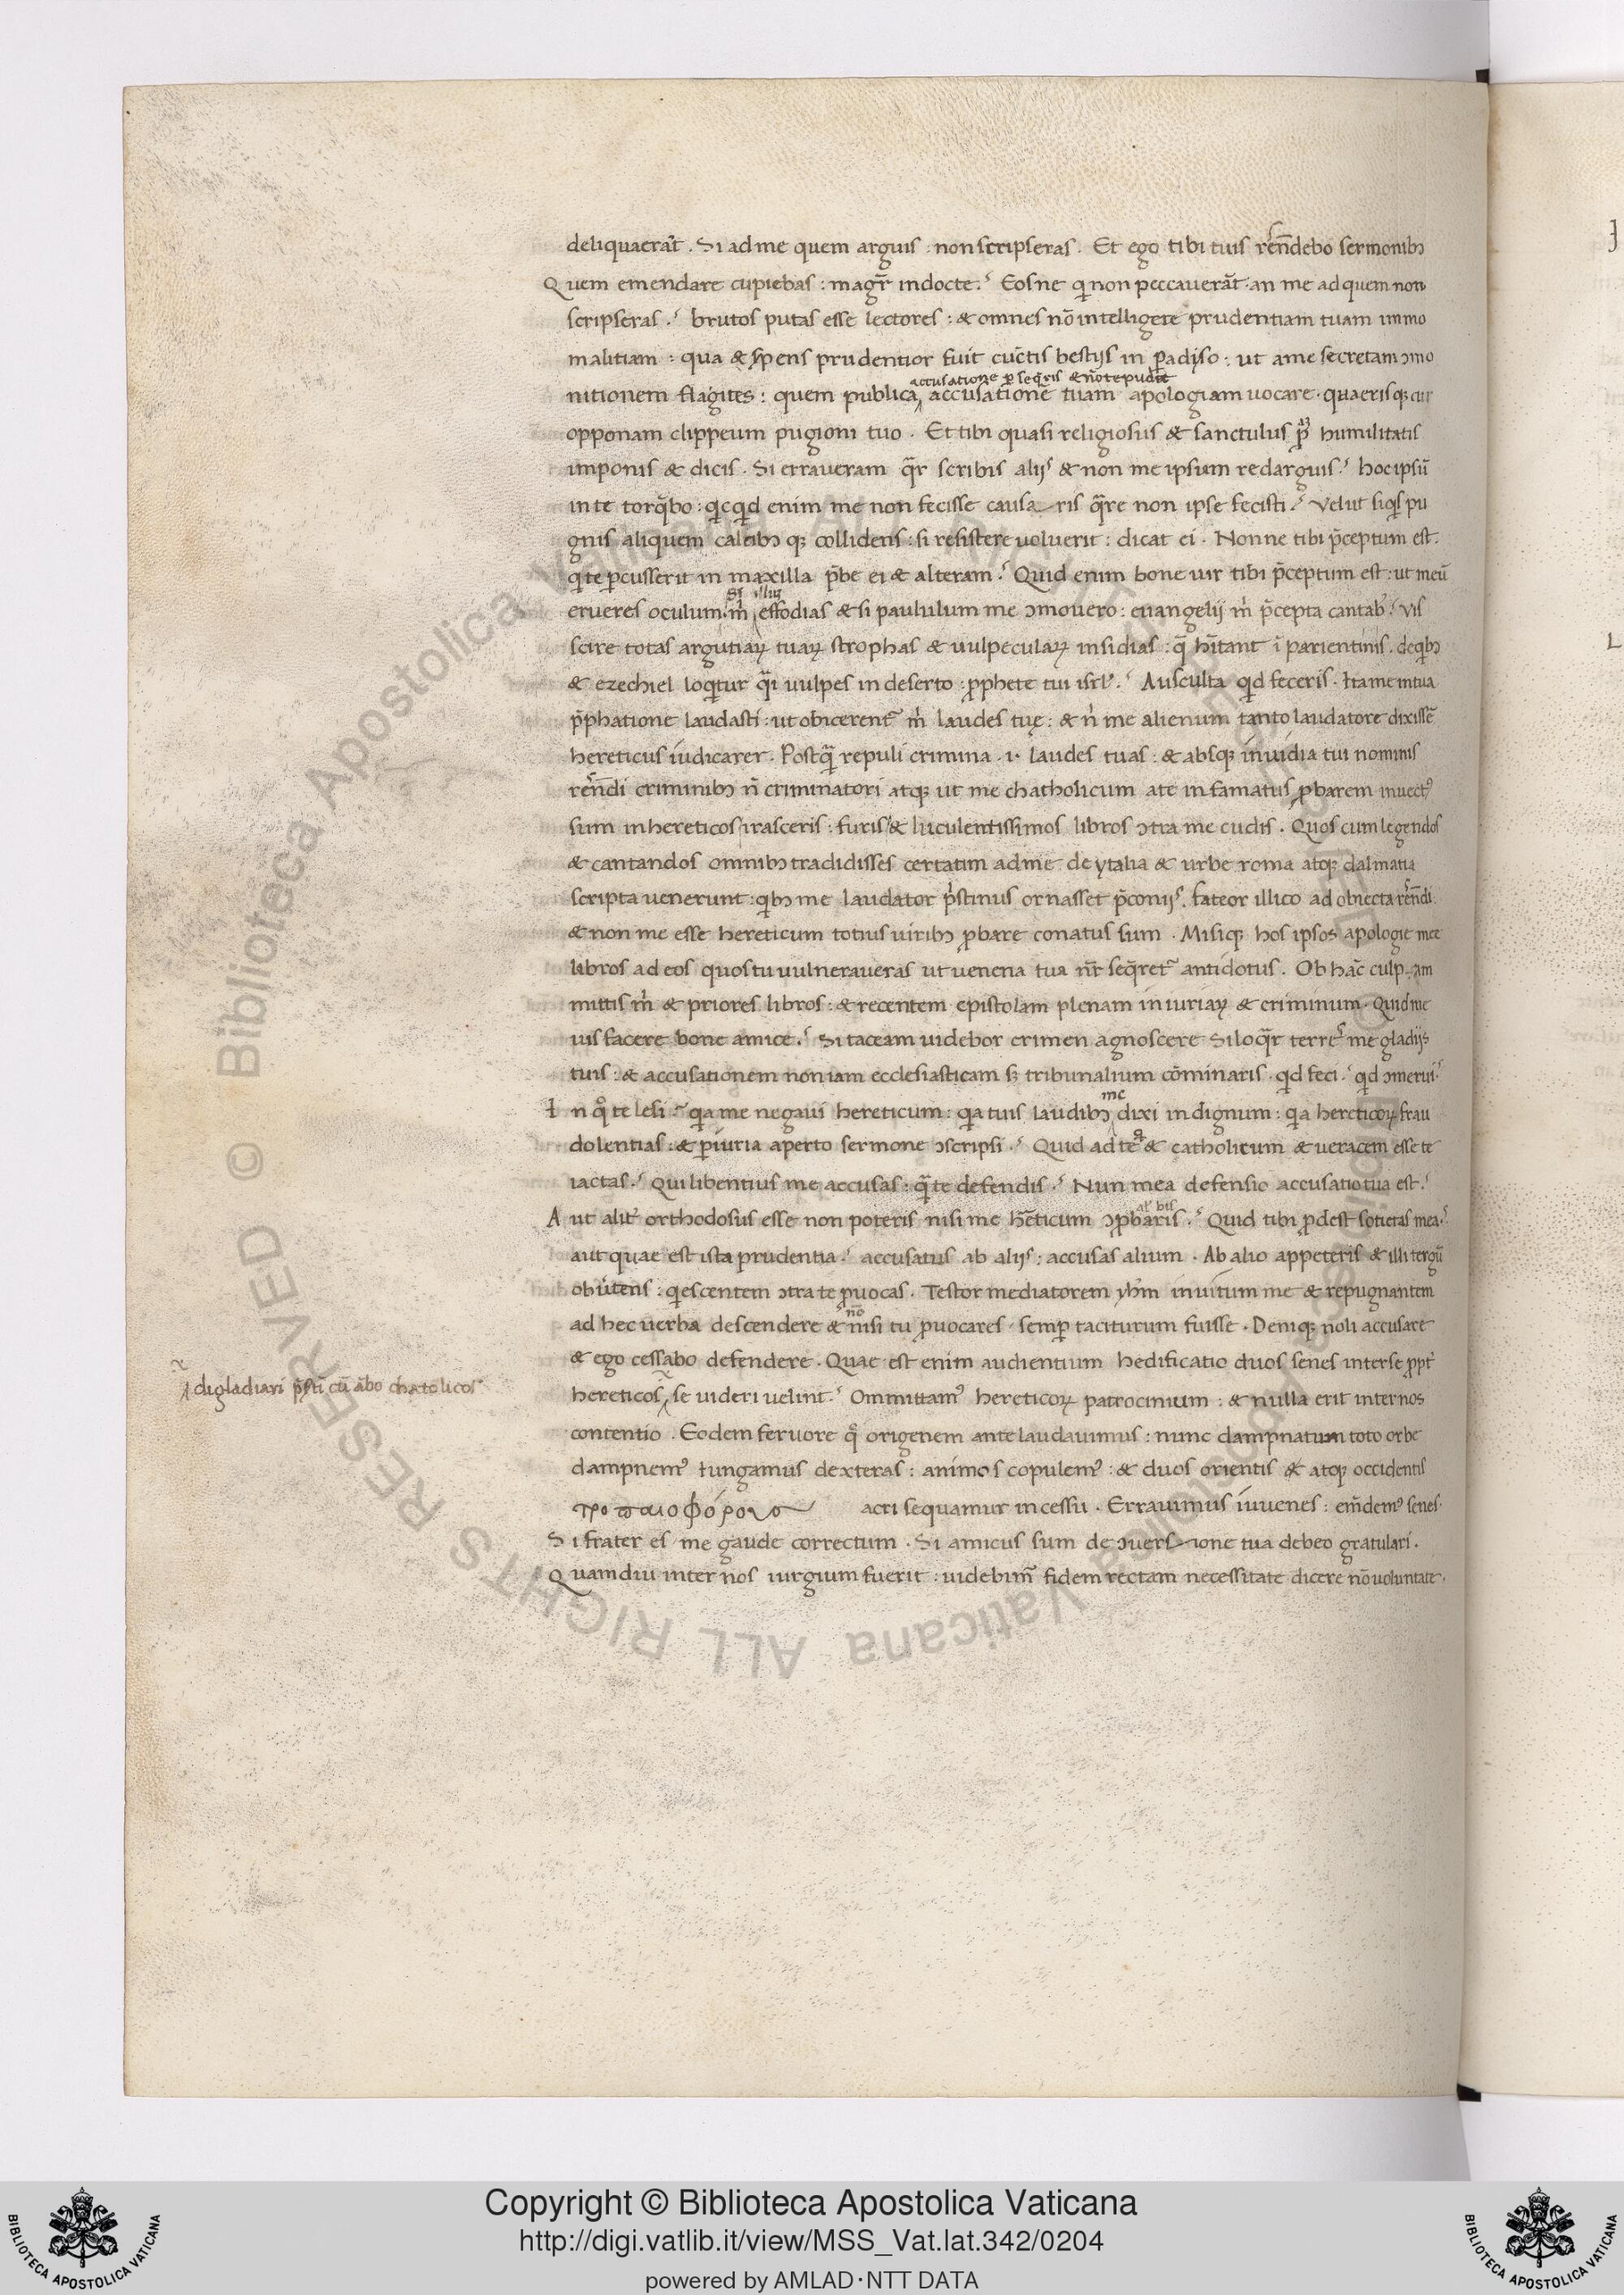 deliquaerāt. Si ad me quem arguis : non scripseras. Et ego tibi tuis rn̄debo sermonibꝫ
Quem emendare cupiebas : magr̄ indocte? Eosne qi non peccauerāt. an me ad quem non
scripseras? brutos putas esse lectores : & omnes nō intelligere prudentiam tuam immo
malitiam : qua & spens prudentior fuit cunctis bestijs in padiso : ut a me secretam ɔmo
accusatione pseqris & nō repudit
nitionem flagites : quem publica accusationē tuam apologiam uocare. quaerisqꝫ cur
opponam clippeum pugioni tuo. Et tibi quasi religiosus & sanctulus humilitatis
imponis & dicis. Si erraueram qr̄ scribis alijs & non me ipsum redarguis? hoc ipsū
in te torqbo : qicqid enim me non fecisse causaris qre non ipse fecisti? Velut si qis pu
gnis aliquem calcibꝫqꝫ collidens : si resistere uoluerit : dicat ei. Nonne tibi p̄ceptum est.
qi te p̱cusserit in maxilla p̄be ei & alteram? Quid enim bone uir tibi p̄ceptum est : ut meū
erueres oculum. m̍ effodias & si paululum me ɔmouero : euangelij m̍ p̄cepta cantab̍? Vis
scire totas argutiaꝝ tuaꝝ strophas & uulpeculaꝝ insidias : q̄ hītant ī parientinis. de qibꝫ
& ezechiel loqitur qi uulpes in deserto : ꝓphete tui isrl̍? Ausculta qid feceris. Ita me in tua
p̄phatione laudasti : ut obicerent̄ m̍ laudes tuę : & n̍ me alienum tanto laudatore dixissē
hereticus iudicarer. Postq̄ repuli crimina .i. laudes tuas : & absqꝫ inuidia tui nominis
rn̄di criminibꝫ n̄ criminatori atqꝫ ut me chatholicum a te infamatus ꝓbarem inuect᾽
sum in hereticos irasceris : furis & luculentissimos libros ɔtra me cudis. Quos cum legendos
& cantandos omnibꝫ tradidisses certatim ad me de ytalia & urbe roma atqꝫ dalmatia
scripta uenerunt : qibꝫ me laudator p̍stinus ornasset p̄conijs. fateor illico ad obiecta rn̄di
& non me esse hereticum totius uiribꝫ ꝓbare conatus sum. Misiqꝫ hos ipsos apologie mee
libros ad eos quos tu uulneraueras ut uenena tua nr̄ seqret̄ antidotus. Ob hāc culpam
mittis m̍ & priores libros : & recentem epistolam plenam iniuriaꝝ & criminum. Quid me
uis facere bone amice? Si taceam uidebor crimen agnoscere Si loqr̄ terres me gladijs
tuis : & accusationem non iam ecclesiasticam sꝫ tribunalium cōminaris. qid feci? qid ɔmerui?
me
In qo te lesi? qia me negaui hereticum : qia tuis laudibꝫ dixi indignum : qia hereticoꝝ frau
dolentias : & p̱iuria aperto sermone ɔscripsi? Quid ad te qi & catholicum & ueracem esse te
iactas? Qui libentius me accusas : q̄ te defendis? Nun mea defensio accusatio tua est?
Aut alit̍ orthodosus esse non poteris nisi me hēticum ɔꝓbaris? Quid tibi ꝓdest sotietas mea?
aut quae est ista prudentia? accusatus ab alijs : accusas alium. Ab alio appeteris & illi tergū
obuertens : qiescentem ɔtra te ꝓuocas. Testor mediatorem yhm̄ inuitum me & repugnantem
nō
ad hec uerba descendere & nisi tu ꝓuocares. semp̱ taciturum fuisse. Deniqꝫ noli accusare
& ego cessabo defendere. Quae est enim audientium hedificatio duos senes inter se ꝓpt̍
digladiari p̄s̄tī cū ābo chatolicos
hereticos, se uideri uelint? Ommittam᾽ hereticoꝝ patrocinium : & nulla erit inter nos
contentio. Eodem feruore qo origenem ante laudauimus : nunc dampnatum toto orbe
dampnem᾽ Iungamus dexteras : animos copulem᾽ : & duos orientis & atqꝫ occidentis
τροπαιοφόρους acri sequamur incessu. Errauimus iuuenes : emdem᾽ senes.
Si frater es me gaude correctum. Si amicus sum de ɔuersione tua debeo gratulari.
Quamdiu inter nos iurgium fuerit : uidebim̄ fidem rectam necessitate dicere nō uoluntate.
Copyright © Biblioteca Apostolica Vaticana
http://digi.vatlib.it/view/MSS_Vat.lat.342/0204
powered by AMLAD·NTT DATA